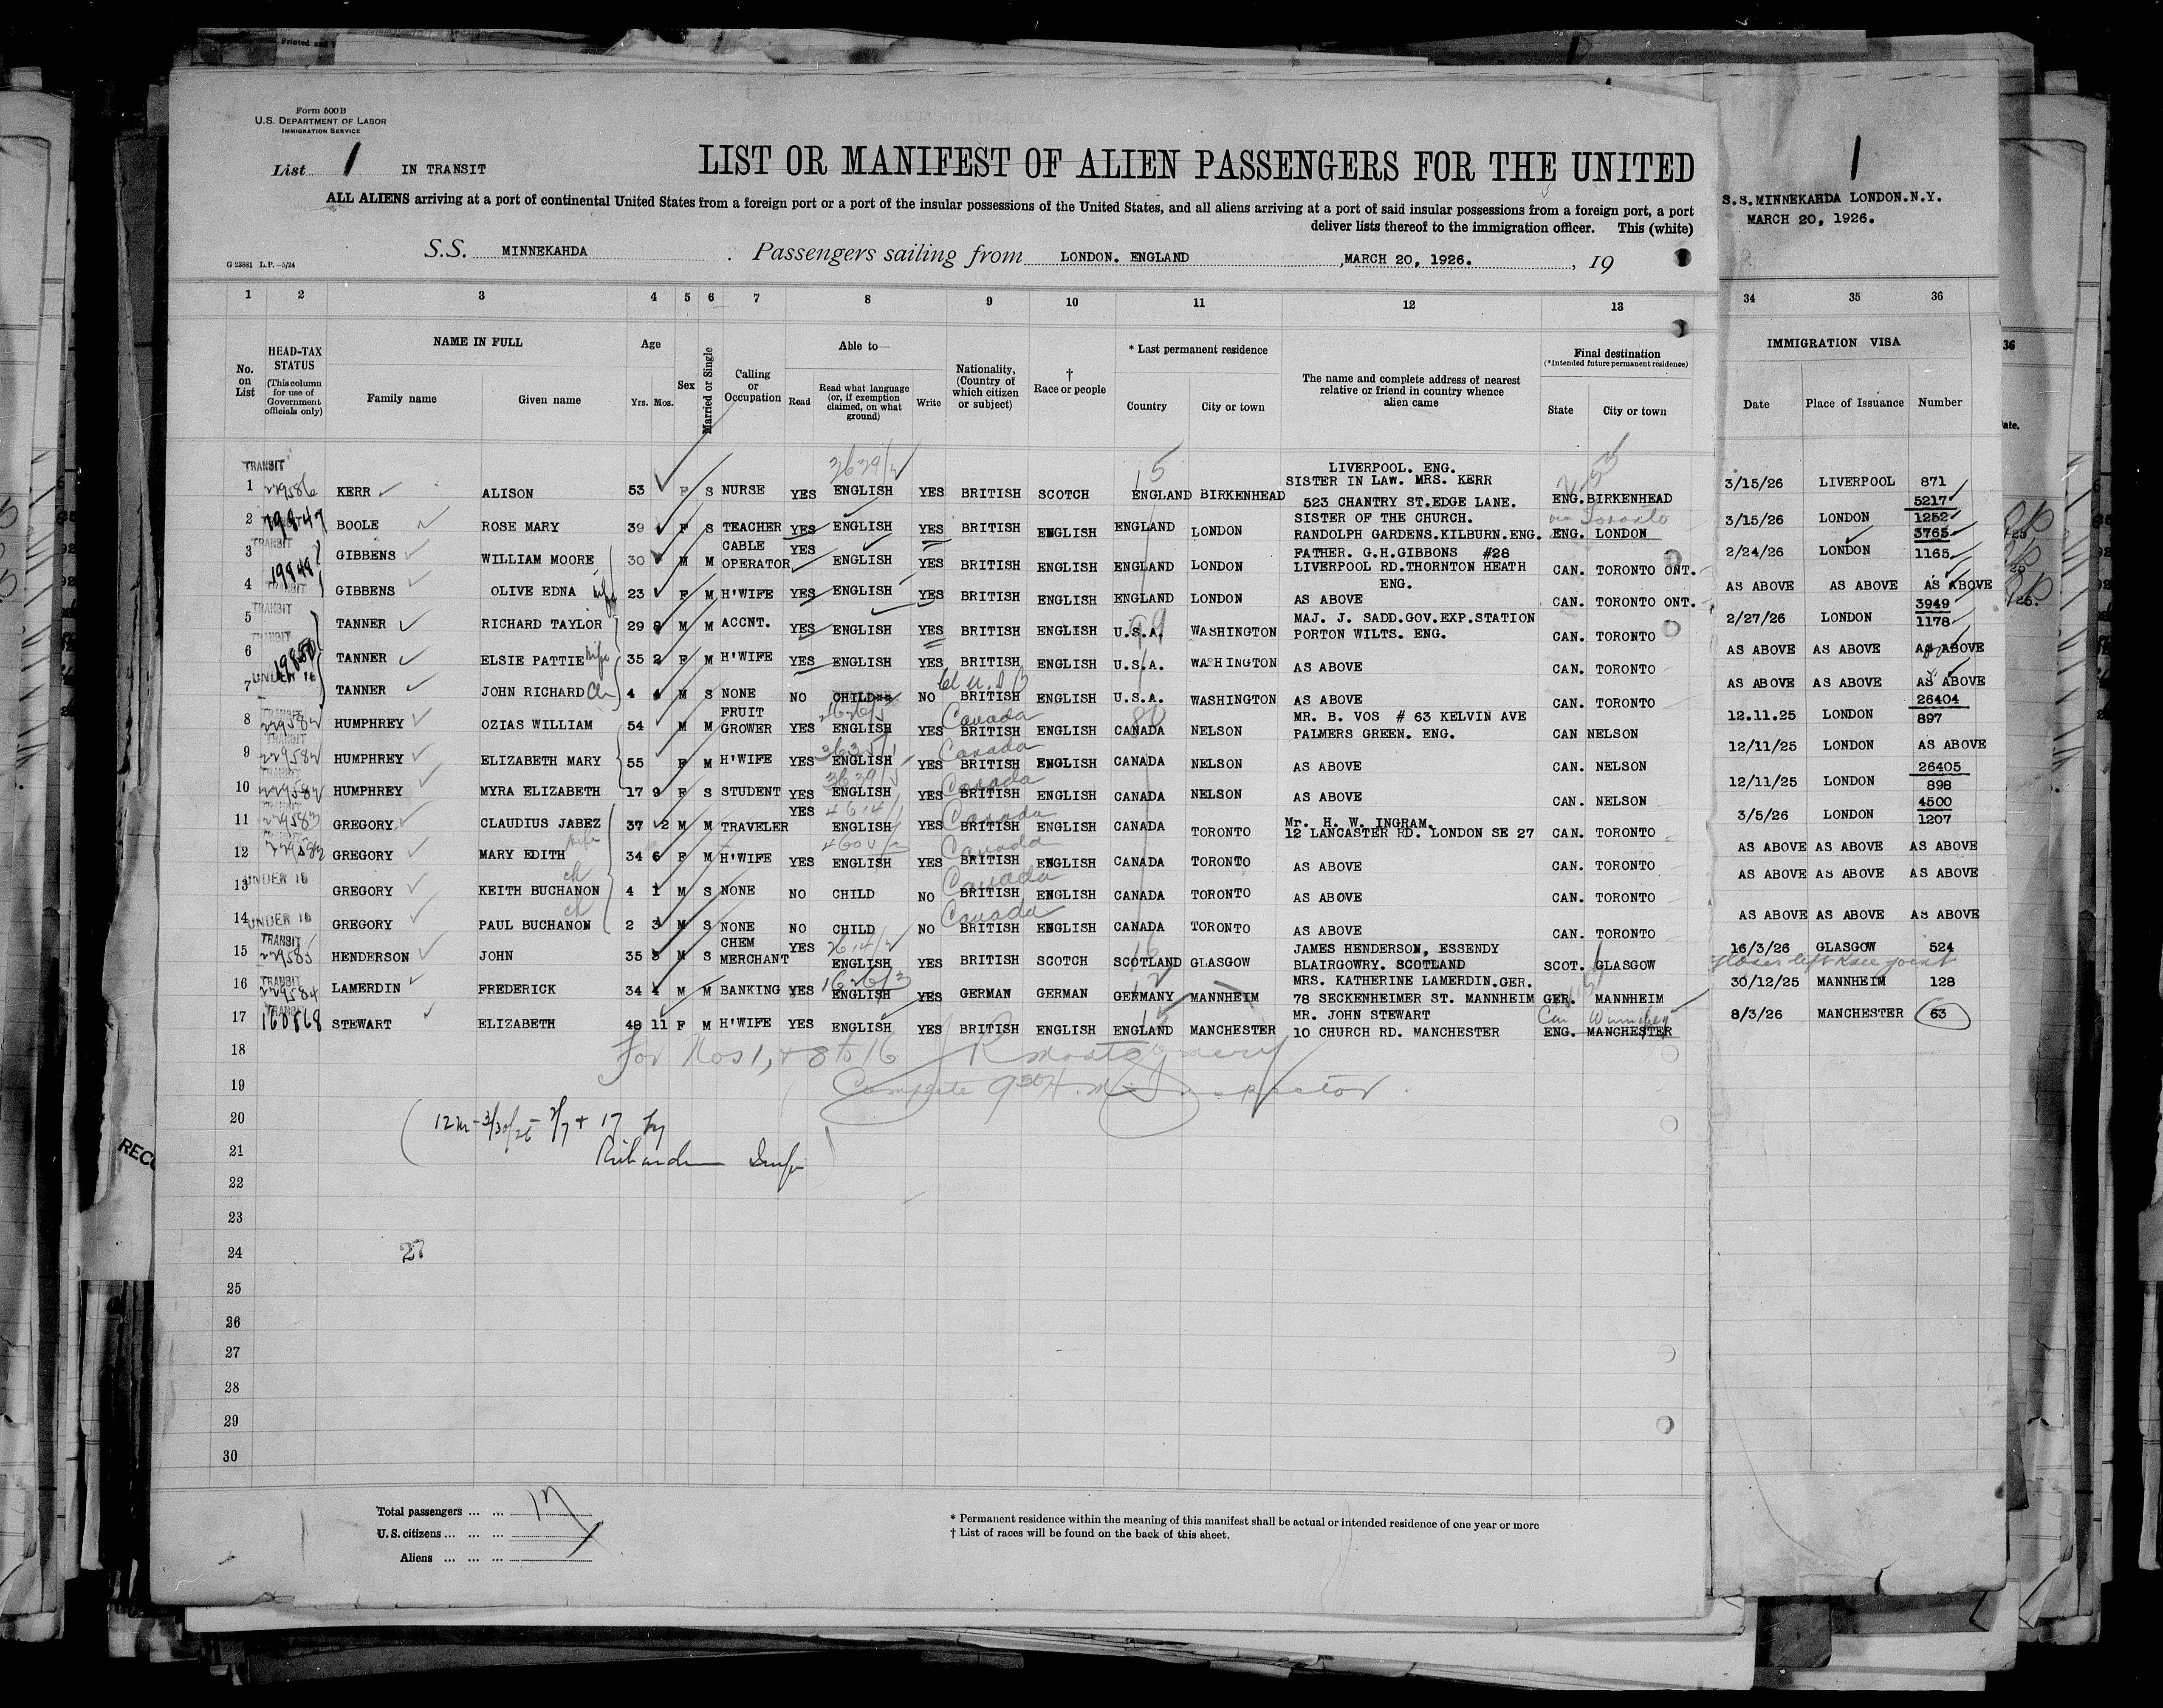 Printed and
Form 500B
U.S. DEPARTMENT OF LABOR
IMMIGRATION SERVICE
List 1 IN TRANSIT
LIST OR MANIFEST OF ALIEN PASSENGERS FOR THE UNITED
ALL ALIENS arriving at a port of continental United States from a foreign port or a port of the insular possessions of the United States, and all aliens arriving at a port of said insular possessions from a foreign port, a port
deliver lists thereof to the immigration officer. This (white)
S.S. MINNEKAHDA . Passengers sailing from LONDON. ENGLAND , MARCH 20, 1926. , 19
G 23881 L.P.—5/24
1
S.S. MINNEKAHDA LONDON.N.Y.
MARCH 20, 1926.
1 2 3 4 5 6 7 8 9 10 11 12 13 34 35 36
No. on List
HEAD-TAX STATUS
(This column for use of Government officials only)
NAME IN FULL
Family name Given name
Age
Yrs. Mos.
Sex
Married or Single
Calling or Occupation
Able to—
Read
Read what language (or, if exemption claimed, on what ground)
Write
Nationality, (Country of which citizen or subject)
† Race or people
* Last permanent residence
Country City or town
The name and complete address of nearest relative or friend in country whence alien came
Final destination
(*Intended future permanent residence)
State City or town
IMMIGRATION VISA
Date Place of Issuance Number
1 TRANSIT 229586 KERR ALISON 53 F S NURSE YES ENGLISH YES BRITISH SCOTCH ENGLAND BIRKENHEAD LIVERPOOL. ENG. SISTER IN LAW. MRS. KERR 523 CHANTRY ST.EDGE LANE. ENG. BIRKENHEAD 3/15/26 LIVERPOOL 871
2 19847 BOOLE ROSE MARY 39 F S TEACHER YES ENGLISH YES BRITISH ENGLISH ENGLAND LONDON SISTER OF THE CHURCH. RANDOLPH GARDENS.KILBURN.ENG. via Toronto ENG. LONDON 3/15/26 LONDON 5217 1252
3 TRANSIT 19848 GIBBENS WILLIAM MOORE 30 M M CABLE OPERATOR YES ENGLISH YES BRITISH ENGLISH ENGLAND LONDON FATHER. G.H.GIBBONS #28 LIVERPOOL RD.THORNTON HEATH ENG. CAN. TORONTO ONT. 2/24/26 LONDON 3765 1165
4 TRANSIT GIBBENS OLIVE EDNA wife 23 F M H'WIFE YES ENGLISH YES BRITISH ENGLISH ENGLAND LONDON AS ABOVE CAN. TORONTO ONT. AS ABOVE AS ABOVE AS ABOVE
5 TRANSIT TANNER RICHARD TAYLOR 29 8 M M ACCNT. YES ENGLISH YES BRITISH ENGLISH U.S.A. WASHINGTON MAJ. J. SADD.GOV.EXP.STATION PORTON WILTS. ENG. CAN. TORONTO 2/27/26 LONDON 3949 1178
6 TRANSIT 19850 TANNER ELSIE PATTIE wife 35 2 F M H'WIFE YES ENGLISH YES BRITISH ENGLISH U.S.A. WASHINGTON AS ABOVE CAN. TORONTO AS ABOVE AS ABOVE AS ABOVE
7 UNDER 16 TANNER JOHN RICHARD Ch 4 4 M S NONE NO CHILD NO BRITISH ENGLISH U.S.A. WASHINGTON AS ABOVE CAN. TORONTO AS ABOVE AS ABOVE AS ABOVE
8 TRANSIT 229582 HUMPHREY OZIAS WILLIAM 54 M M FRUIT GROWER YES ENGLISH YES Canada BRITISH ENGLISH CANADA NELSON MR. B. VOS # 63 KELVIN AVE PALMERS GREEN. ENG. CAN NELSON 12.11.25 LONDON 26404 897
9 TRANSIT 229582 HUMPHREY ELIZABETH MARY 55 F M H'WIFE YES ENGLISH YES Canada BRITISH ENGLISH CANADA NELSON AS ABOVE CAN. NELSON 12/11/25 LONDON AS ABOVE
10 TRANSIT 229582 HUMPHREY MYRA ELIZABETH 17 9 F S STUDENT YES ENGLISH YES Canada BRITISH ENGLISH CANADA NELSON AS ABOVE CAN. NELSON 12/11/25 LONDON 26405 898
11 TRANSIT 229583 GREGORY CLAUDIUS JABEZ 37 2 M M TRAVELER YES ENGLISH YES Canada BRITISH ENGLISH CANADA TORONTO Mr. H. W. INGRAM. 12 LANCASTER RD. LONDON SE 27 CAN. TORONTO 3/5/26 LONDON 4500 1207
12 229583 GREGORY MARY EDITH wife 34 6 F M H'WIFE YES ENGLISH YES Canada BRITISH ENGLISH CANADA TORONTO AS ABOVE CAN. TORONTO AS ABOVE AS ABOVE AS ABOVE
13 UNDER 16 GREGORY KEITH BUCHANON ch 4 1 M S NONE NO CHILD NO Canada BRITISH ENGLISH CANADA TORONTO AS ABOVE CAN. TORONTO AS ABOVE AS ABOVE AS ABOVE
14 UNDER 16 GREGORY PAUL BUCHANON ch 2 3 M S NONE NO CHILD NO Canada BRITISH ENGLISH CANADA TORONTO AS ABOVE CAN. TORONTO AS ABOVE AS ABOVE AS ABOVE
15 TRANSIT 229585 HENDERSON JOHN 35 8 M S CHEM MERCHANT YES ENGLISH YES BRITISH SCOTCH SCOTLAND GLASGOW JAMES HENDERSON, ESSENDY BLAIRGOWRY. SCOTLAND SCOT. GLASGOW 16/3/26 GLASGOW 524
left knee joint
16 TRANSIT 229584 LAMERDIN FREDERICK 34 4 M M BANKING YES ENGLISH YES GERMAN GERMAN GERMANY MANNHEIM MRS. KATHERINE LAMERDIN.GER. 78 SECKENHEIMER ST. MANNHEIM GER. MANNHEIM 30/12/25 MANNHEIM 128
17 TRANSIT 160868 STEWART ELIZABETH 48 11 F M H'WIFE YES ENGLISH YES BRITISH ENGLISH ENGLAND MANCHESTER MR. JOHN STEWART 10 CHURCH RD. MANCHESTER Can Winnipeg ENG. MANCHESTER 8/3/26 MANCHESTER 63
18 For Nos 1, + 8 to 16 R Montgomery
19 Complete 9 30 A.M. Inspector.
20 12m - 3/30/26 - 2/7 + 17 by
21 Richardson Insp
22
23
24 27
25
26
27
28
29
30
RECO
Total passengers ... ... 17
U.S. citizens ... ... ...
Aliens ... ... ...
* Permanent residence within the meaning of this manifest shall be actual or intended residence of one year or more
† List of races will be found on the back of this sheet.